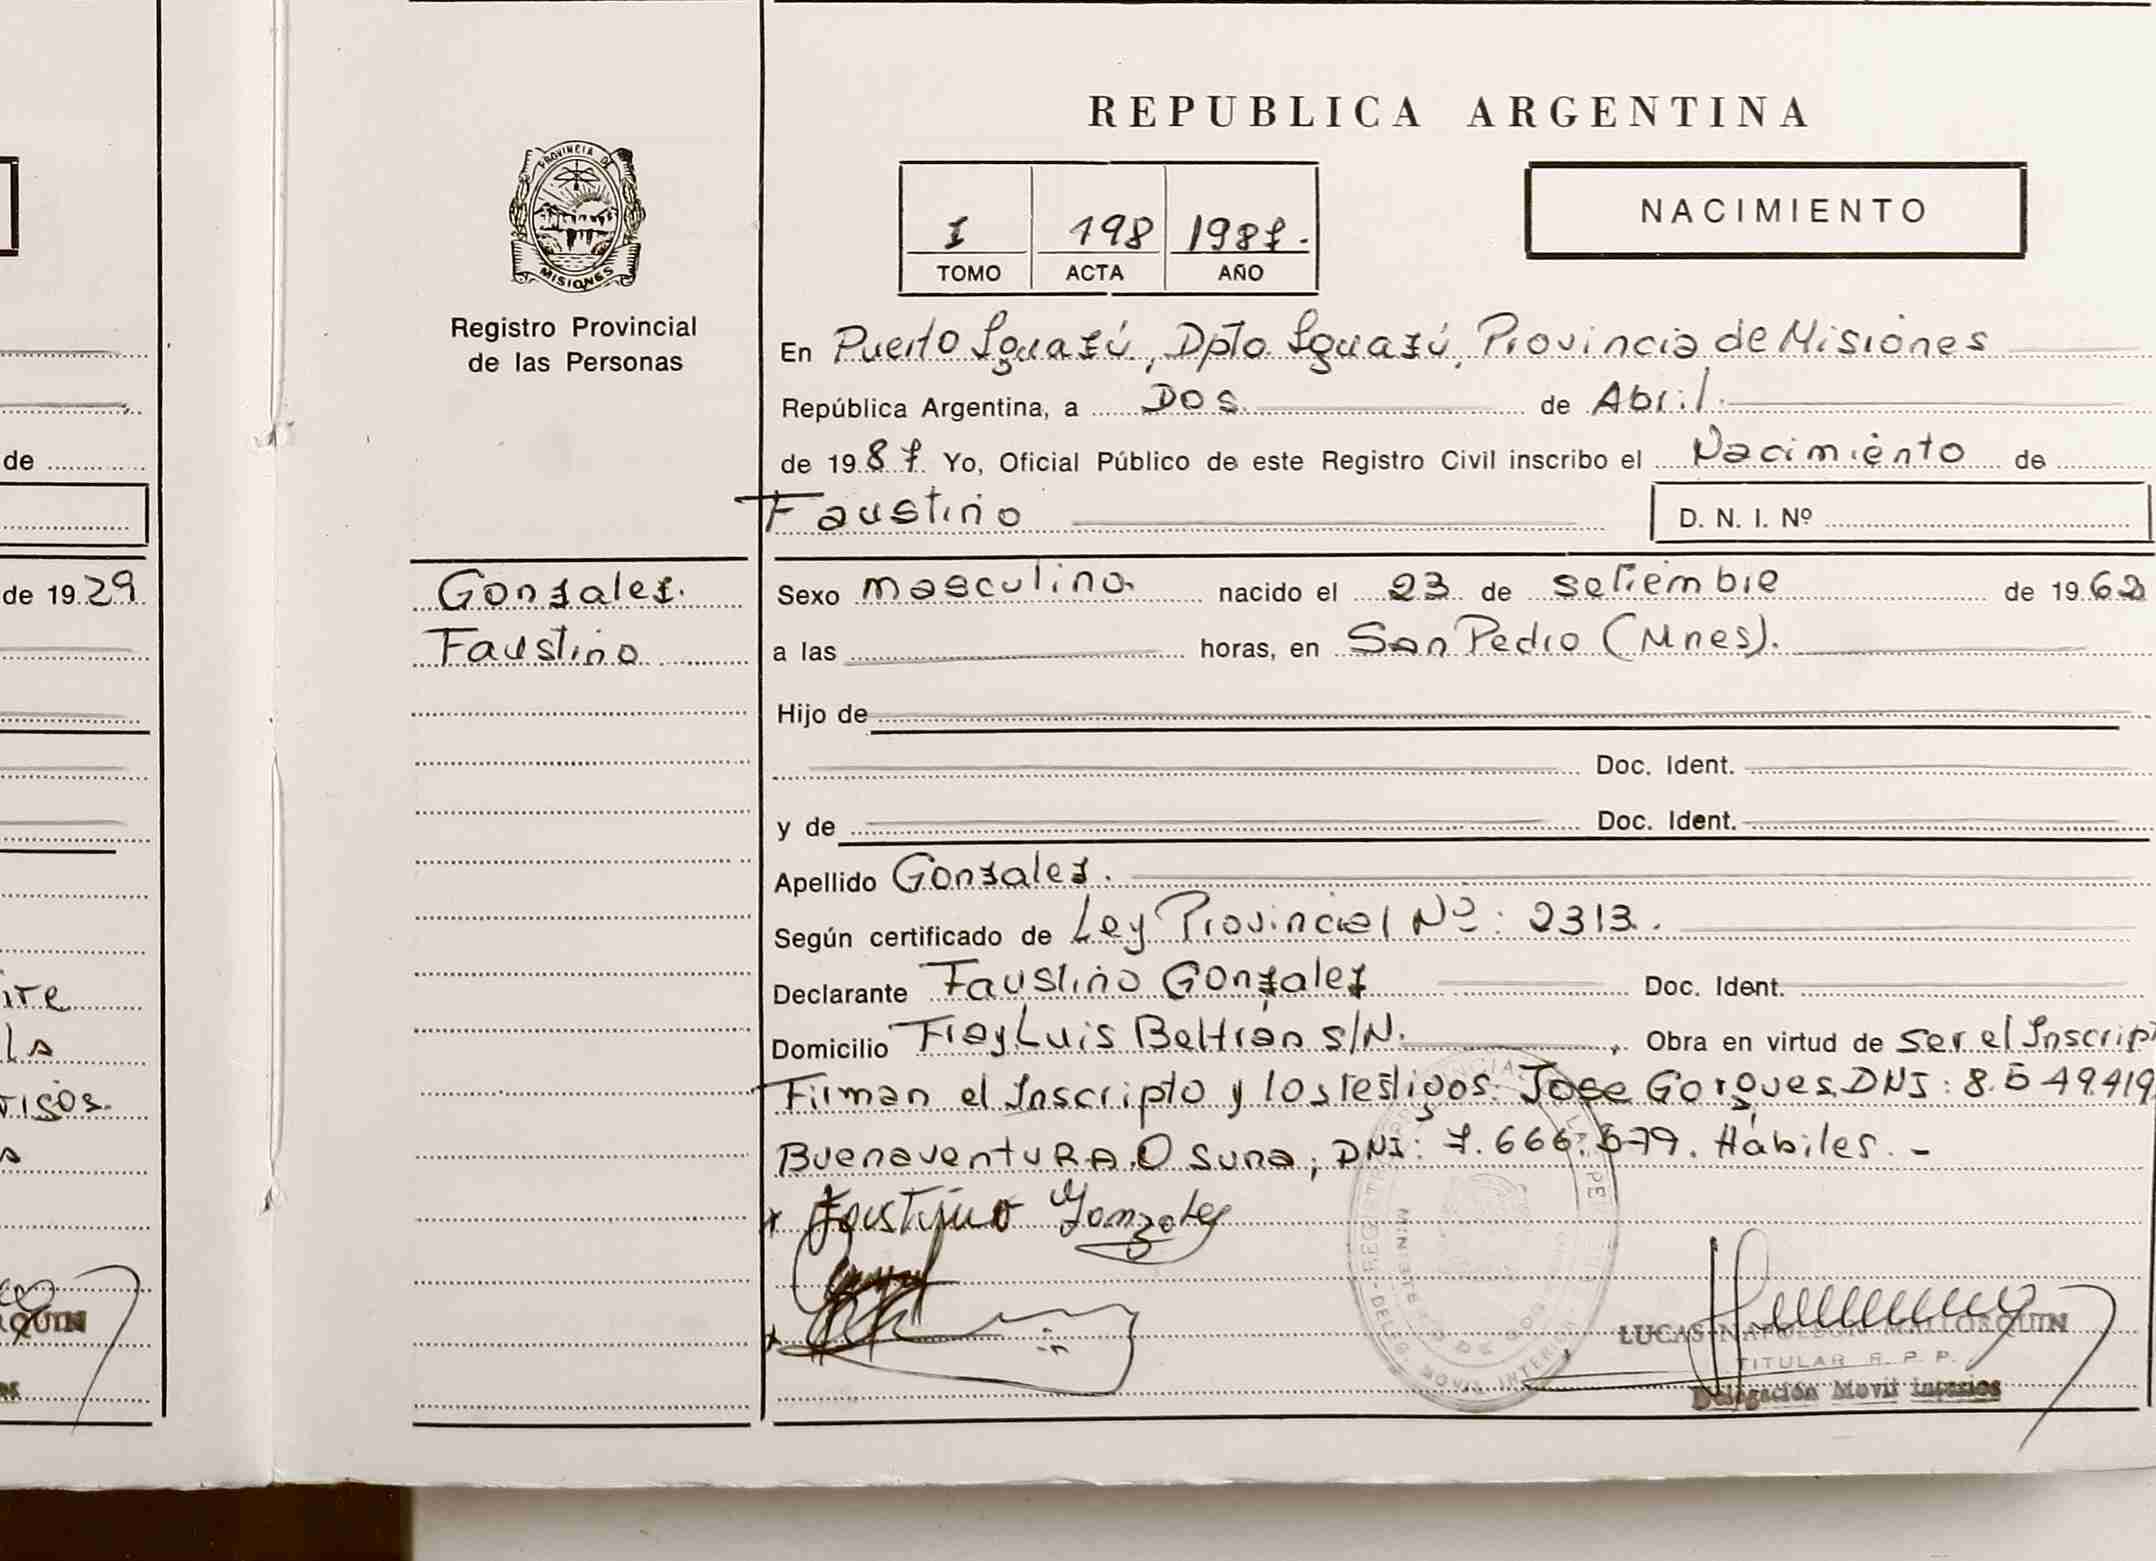 REPUBLICA ARGENTINA
PROVINCIA DE
MISIONES
Registro Provincial
de las Personas
I 198 1987.
TOMO ACTA AÑO
NACIMIENTO
En Puerto Iguazú, Dpto Iguazú, Provincia de Misiones
República Argentina, a Dos de Abril.
de 1987. Yo, Oficial Público de este Registro Civil inscribo el Nacimiento de
Faustino D. N. I. Nº
Gonzalez.
Faustino
Sexo masculino. nacido el 23 de setiembre de 1962
a las horas, en San Pedro (Mnes).
Hijo de
Doc. Ident.
y de Doc. Ident.
Apellido Gonzalez.
Según certificado de Ley Provincial Nº: 2313.
Declarante Faustino Gonzalez Doc. Ident.
Domicilio Fray Luis Beltrán s/N. Obra en virtud de ser el Inscrip
Firman el Inscripto y los testigos. Jose Gorgues DNI: 8.549.419
Buenaventura Osuna, DNI: 7.666.579. Hábiles.-
Faustino Gonzalez
LUCAS NAPOLEON MALLORQUIN
TITULAR R. P. P.
Delegación Movil Interior
de
de 1929
QUIN